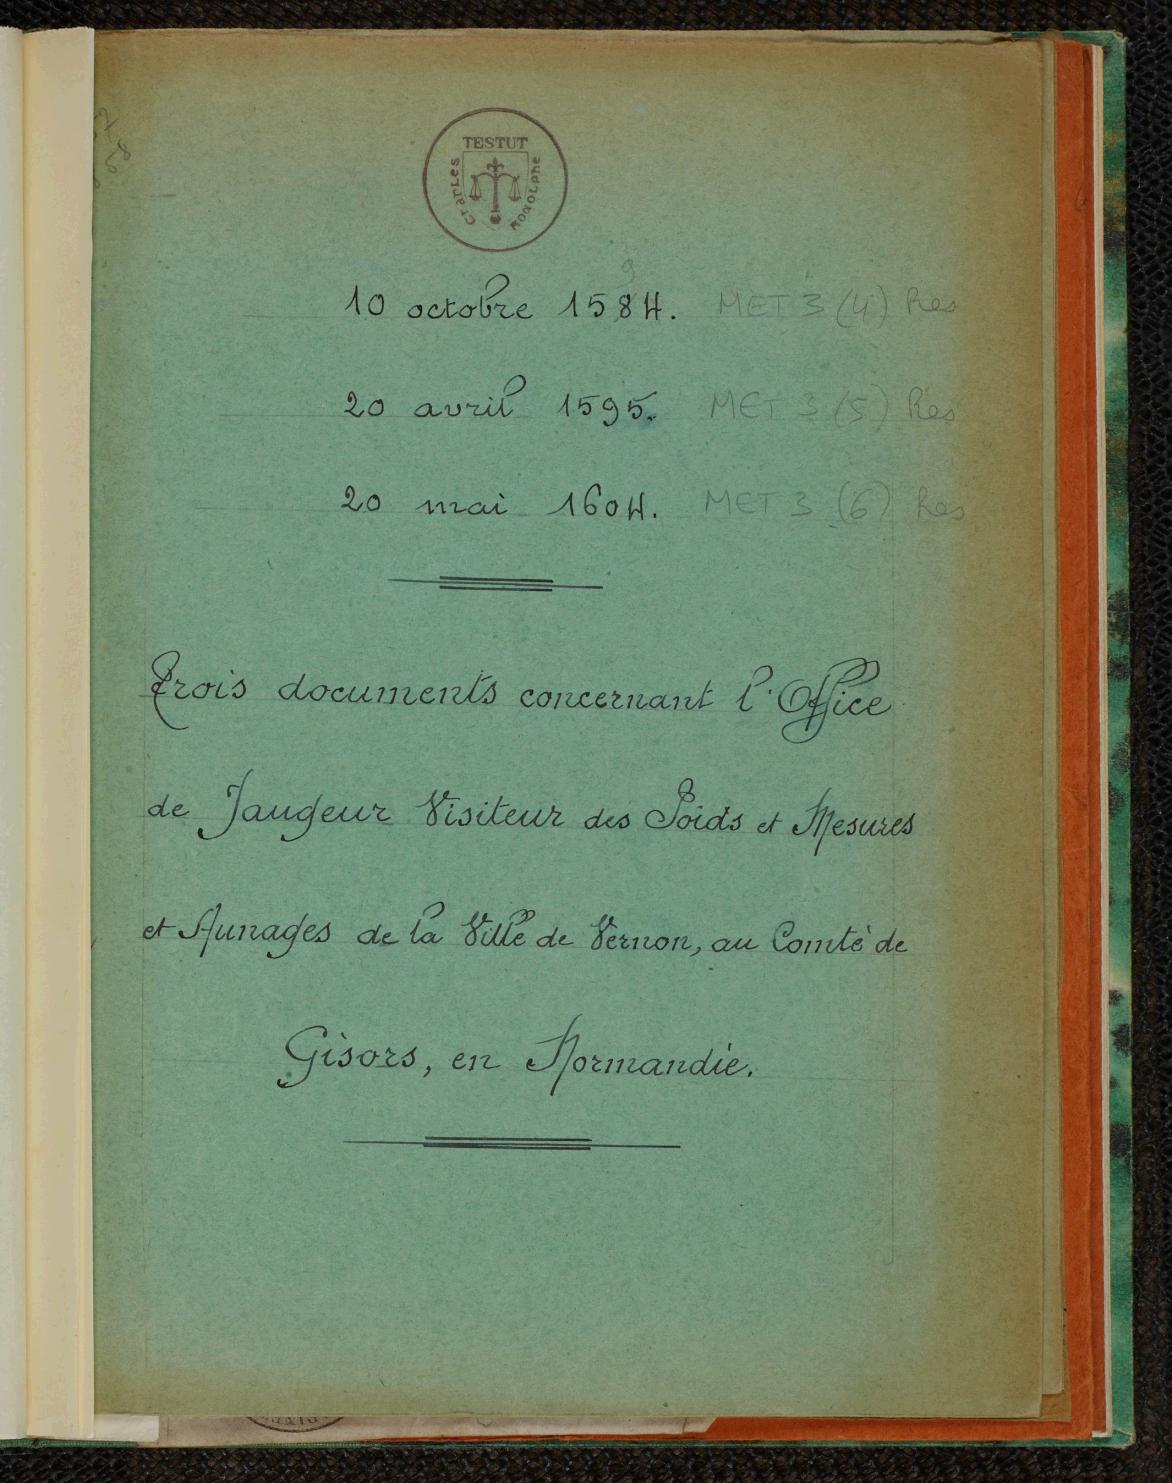 TESTUT
CHARLES RODOLPHE
9
10 octobre 1584. MET 3 (4) Res
20 avril 1595. MET 3 (5) Res
20 mai 1604. MET 3 (6) Res
Trois documents concernant l'Office
de Jaugeur Visiteur des Poids et Mesures
et Aunages de la Ville de Vernon, au Comté de
Gisors, en Normandie.